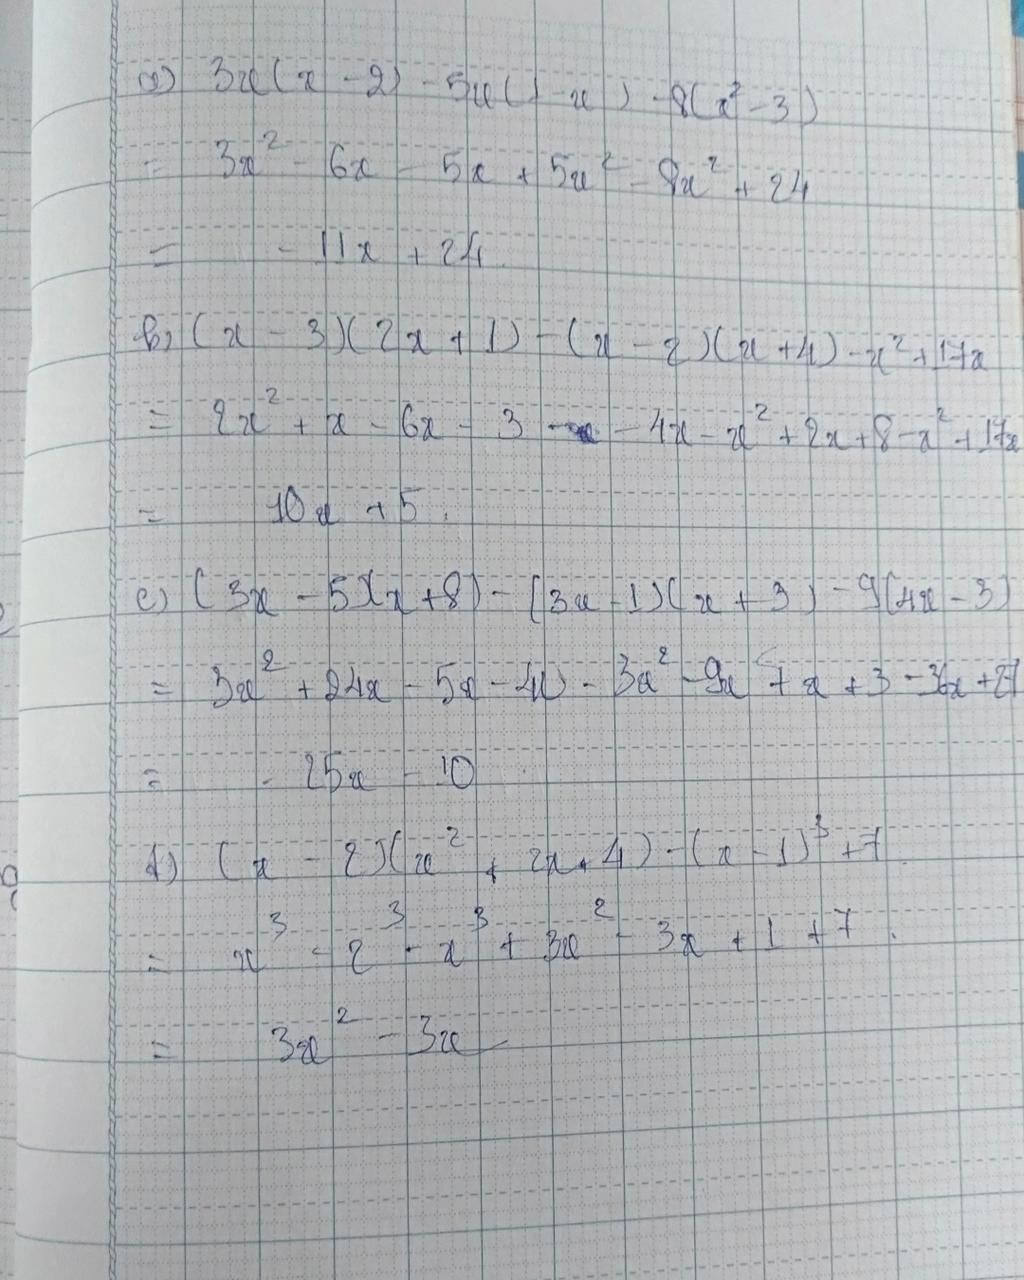 a) 3x(x - 2) - 5x(1 - x) - 8(x² - 3)
= 3x² - 6x - 5x + 5x² - 8x² + 24
= - 11x + 24.
b) (x - 3)(2x + 1) - (x - 2)(x + 4) - x² + 17x
= 2x² + x - 6x - 3 - 4x - x² + 2x + 8 - x² + 17x
= 10x + 5.
c) (3x - 5)(x + 8) - (3x - 1)(x + 3) - 9(4x - 3)
= 3x² + 24x - 5x - 40 - 3x² - 9x + x + 3 - 36x + 27
= - 25x - 10
d) (x - 2)(x² + 2x + 4) - (x - 1)³ + 7
= x³ - 2³ - x³ + 3x² - 3x + 1 + 7.
= 3x² - 3x